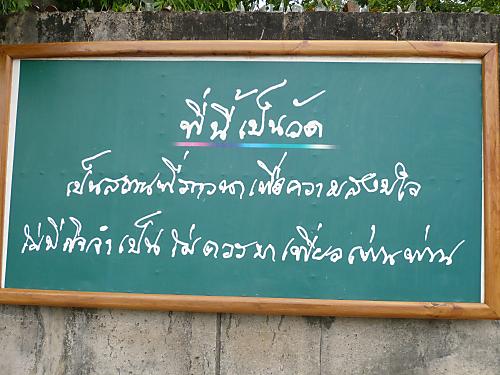 ที่นี้เป็นวัด
เป็นสถานที่ภาวนาเพื่อความสงบใจ
ไม่มีกิจจำเป็นไม่ควรมาเที่ยวพ่นพ่าน